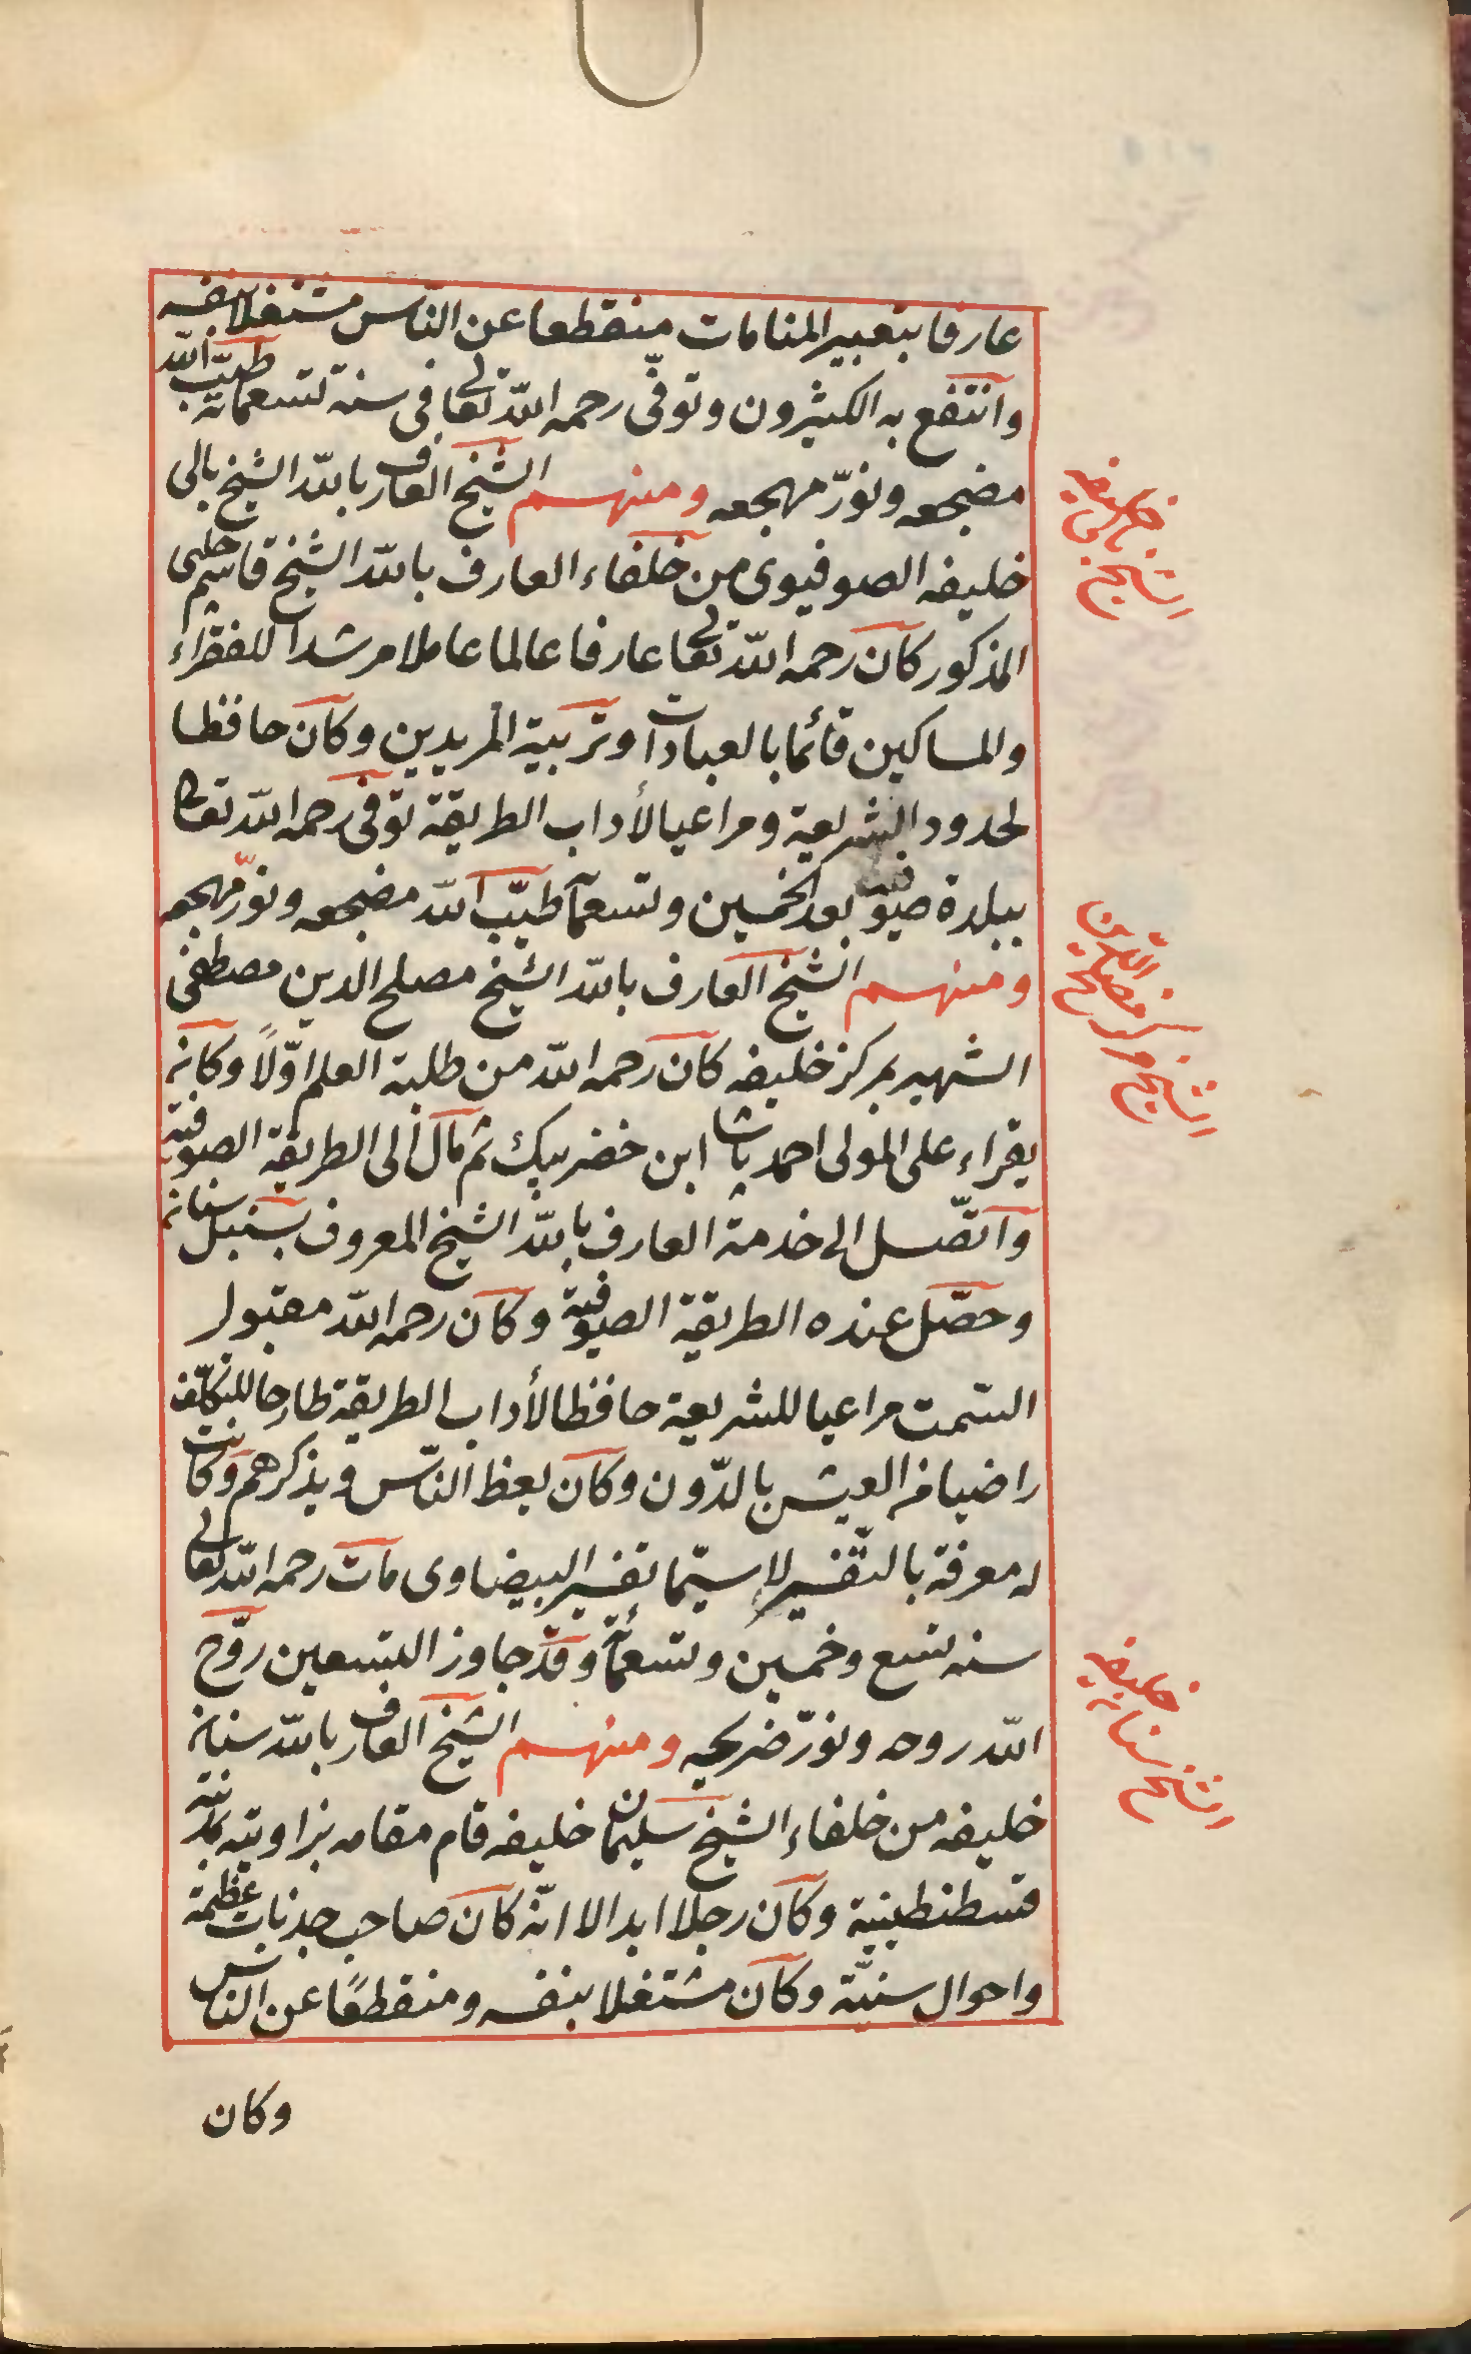 عارفا بتعبير المنامات منقطعا عن الناس مشتغلا بنفسه
وانتفع به الكثيرون وتوفى رحمه الله تعالى فى سنة تسعمائة طيب الله
مضجعه ونور مهجعه ومنهم الشيخ العارف بالله الشيخ بالى
خليفه الصوفيوى من خلفاء العارف بالله الشيخ قاسم چلبى
المذكور كان رحمه الله تعالى عارفا عالما عاملا مرشدا للفقراء
والمساكين قائما بالعبادات وتربية المريدين وكان حافظا
لحدود الشريعة ومراعيا لأداب الطريقة توفى رحمه الله تعالى
ببلدة صوفية بعد الخمسين وتسعمائة طيب الله مضجعه ونور مهجعه
ومنهم الشيخ العارف بالله الشيخ مصلح الدين مصطفى
الشهير بمركز خليفه كان رحمه الله من طلبة العلم اولا وكان
يقراء على المولى احمد باشا ابن خضر بيك ثم مال الى الطريقة الصوفية
واتصل الى خدمة العارف بالله الشيخ المعروف بسنبل سنان
وحصل عنده الطريقة الصوفية وكان رحمه الله مقبول
السمت مراعيا للشريعة حافظا لأداب الطريقة طارحا للتكلف
راضيا من العيش بالدون وكان يعظ الناس ويذكرهم وكانت
له معرفة بالتفسير لا سيما تفسير البيضاوى مات رحمه الله تعالى
سنه تسع وخمسين وتسعمائة وقد جاوز التسعين روح
الله روحه ونور ضريحه ومنهم الشيخ العارف بالله سنان
خليفه من خلفاء الشيخ سليمان خليفه قام مقامه بزاويته بمدينة
قسطنطينية وكان رجلا ابدالا انه كان صاحب جذبات عظيمة
واحوال سنية وكان مشتغلا بنفسه ومنقطعا عن الناس
وكان
الشيخ بالى خليفه
الشيخ مركز مصلح الدين
الشيخ سنان خليفه